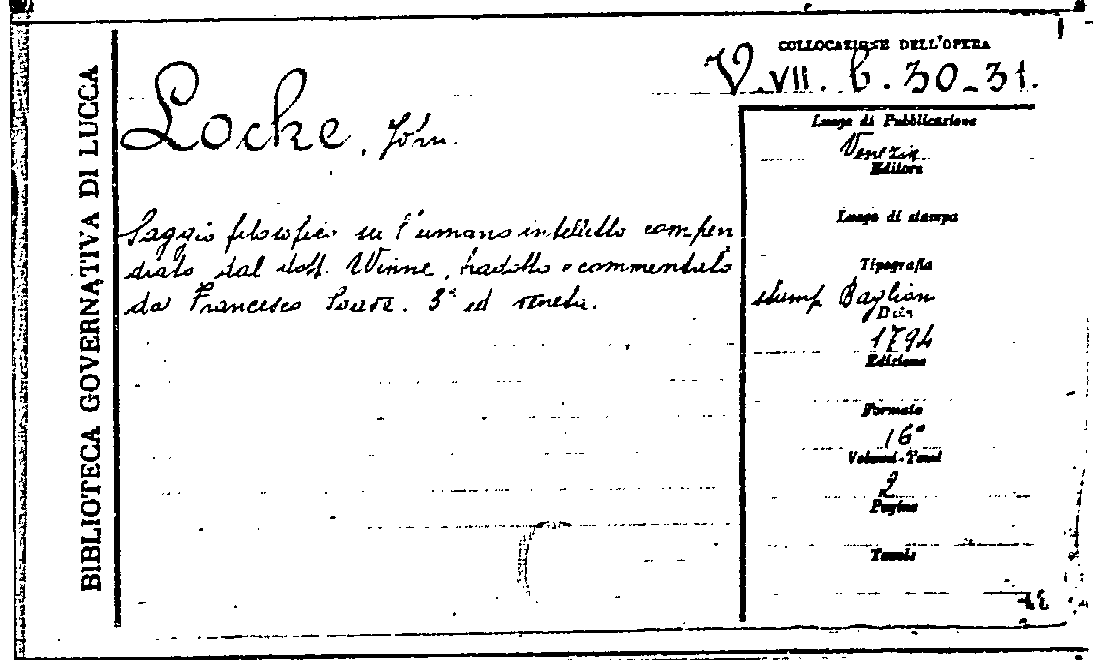 BIBLIOTECA GOVERNATIVA DI LUCCA
COLLOCAZIONE DELL'OPERA
V. VII. b. 30-31.
Locke, John.
Saggio filosofico su l'umano intelletto compen
diato dal dott. Winne, tradotto e commentato
da Francesco Soave. 3ª ed veneta.
Luogo di Pubblicazione
Venezia
Editore
Luogo di stampa
Tipografia
stamp Baglioni
Data
1794
Edizione
Formato
16°
Volumi-Tomi
2
Pagine
Tavole